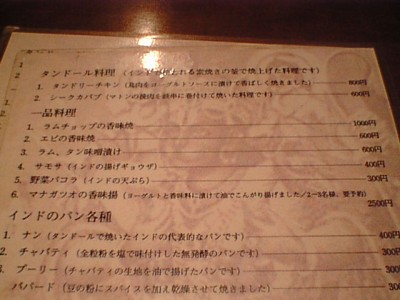 タンドール料理（インドで使われる窯焼きの釜で焼上げた料理です）
1. タンドリーチキン（鳥肉をヨーグルトソースに漬けて香ばしく焼きました） 800円
2. シークカバブ（マトンの挽肉を鉄串に巻付けて焼いた料理です） 600円
一品料理
1. ラムチョップの香味焼 1000円
2. エビの香味焼 600円
3. ラム、タン味噌漬け 600円
4. サモサ（インドの揚げギョウザ） 400円
5. 野菜パコラ（インドの天ぷら） 300円
6. マナガツオの香味揚（ヨーグルトと香味料に漬けて油でこんがり揚げました／2〜3名様、要予約） 2500円
インドのパン各種
1. ナン（タンドールで焼いたインドの代表的なパンです） 400円
2. チャパティ（全粒粉を塩で味付けした無発酵のパンです） 300円
3. プーリー（チャパティの生地を油で揚げたパンです） 300円
パパード（豆の粉にスパイスを加え乾燥させて焼きました）